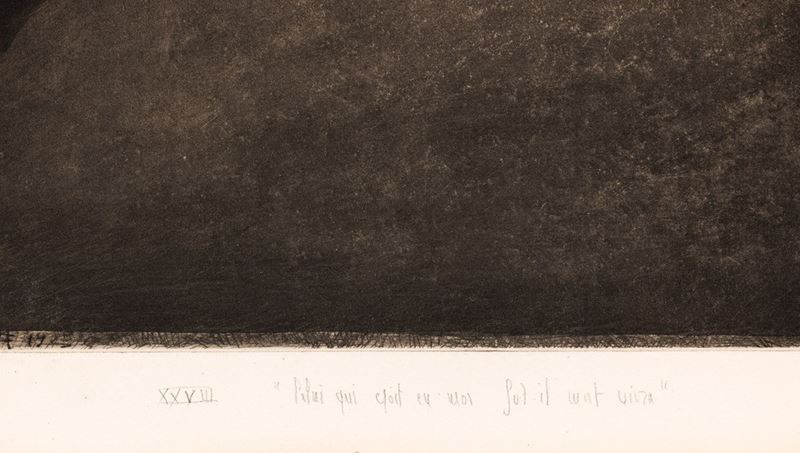 XXVIII "Celui qui croit en moi fut-il mort vivra"